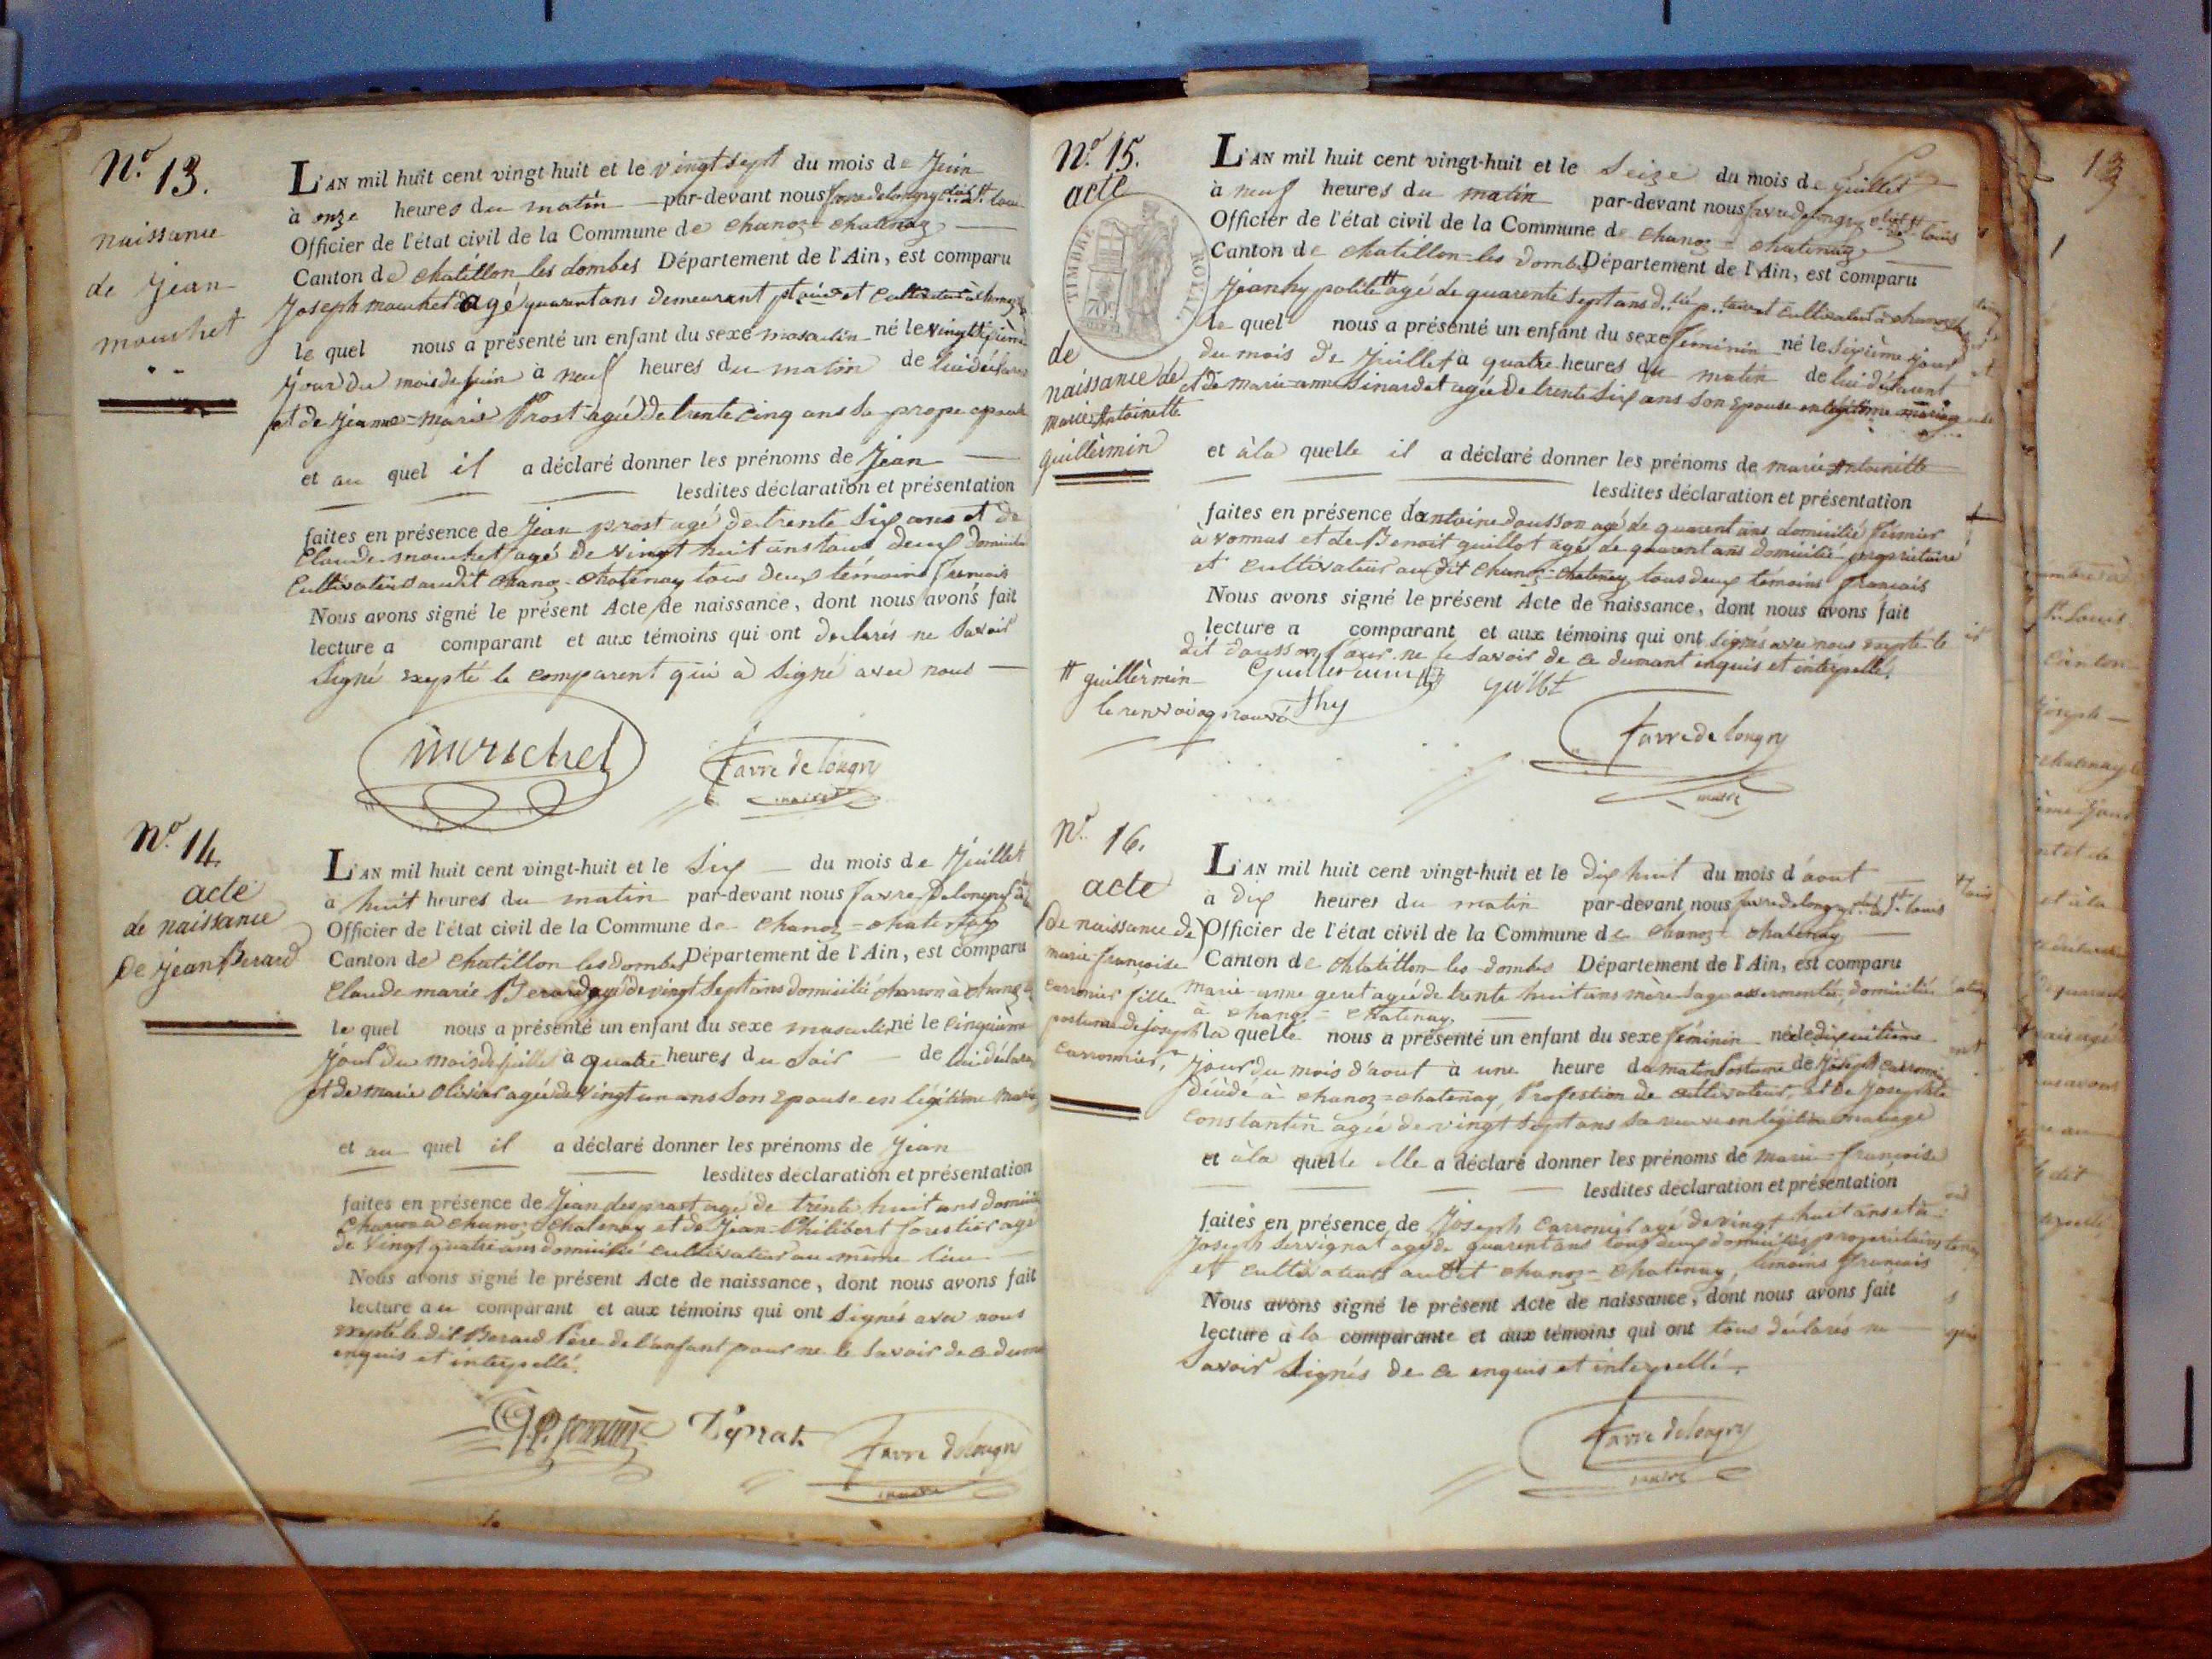 N.o 13.
naissance
de Jean
mouchet
L'AN mil huit cent vingt-huit et le vingt sept du mois de Juin
à onze heures du matin par-devant nous favre delongry
Officier de l'état civil de la Commune de chanoz = chatenay
Canton de chatillon les dombes Département de l'Ain, est comparu
Joseph mouchet agé quarant ans demeurant
le quel nous a présenté un enfant du sexe masculin né le
jour du mois de Juin à neuf heures du matin de lui déclarant
et de Jeanne = marie Prost agée de trente cinq ans sa propre epouse
et au quel il a déclaré donner les prénoms de Jean
lesdites déclaration et présentation
faites en présence de Jean prost agé de trente six ans et de
Claude mouchet agé de vingt huit ans tous deux
Cultivateurs audit chanoz = chatenay tous deux témoins francais
Nous avons signé le présent Acte de naissance, dont nous avons fait
lecture a comparant et aux témoins qui ont declarés ne savoir
signé excepté le comparent qui à signé avec nous
mouchet favre de longry
maire
N.o 14.
acte
de naissance
de jean Berard
L'AN mil huit cent vingt-huit et le six du mois de Juillet
à huit heures du matin par-devant nous favre Delongry
Officier de l'état civil de la Commune de chanoz = chatenay
Canton de chatillon les dombes Département de l'Ain, est comparu
Claude marie Berard agé de vingt sept ans domicilié charron à chanoz
le quel nous a présenté un enfant du sexe masculin né le cinquième
jour du mois de juillet à quatre heures du soir de lui déclarant
et de marie olivier agée de vingt un ans son Epouse en légitime
et au quel il a déclaré donner les prénoms de Jean
lesdites déclaration et présentation
faites en présence de Jean desprat agé de trente huit ans
charron à chanoz = chatenay et de Jean = Philibert forestier agé
de vingt quatre ans domicilié cultivateur au même lieu
Nous avons signé le présent Acte de naissance, dont nous avons fait
lecture au comparant et aux témoins qui ont signés avec nous
excepté le dit Berard Père de l'enfant pour ne le savoir de ce
enquis et interpellé.
favre delongry
maire
N.o 15.
acte
TIMBRE ROYAL
70c
de
naissance de
marie Antoinette
guillermin
L'AN mil huit cent vingt-huit et le seize du mois de juillet
à neuf heures du matin par-devant nous favre delongry louis
Officier de l'état civil de la Commune de chanoz = chatenay
Canton de chatillon = les dombes Département de l'Ain, est comparu
Jean hypolite # agé de quarente sept ans
le quel nous a présenté un enfant du sexe féminin né le sixième jour
du mois de Juillet à quatre heures du matin de lui déclarant
et de marie = anne sinardet agée de trente six ans son Epouse en légitime mariage
et à la quelle il a déclaré donner les prénoms de marie Antoinette
lesdites déclaration et présentation
faites en présence d'antoine dausson agé de quarent ans domicilié fermier
à vonnas et de Benoit guillot agé de quarent ans domicilié propriétaire
et cultivateur au dit chanoz = chatenay tous deux témoins francais
Nous avons signé le présent Acte de naissance, dont nous avons fait
lecture a comparant et aux témoins qui ont signés avec nous excepté le
dit dausson pour ne le savoir de ce dument enquis et interpellé.
# guillermin
le renvoi aprouvé
favre de longry
maire
N.o 16.
acte
De naissance de
marie = francoise
carronier fille
postume de joseph
carronnier,
L'AN mil huit cent vingt-huit et le dix huit du mois d'aout
à dix heures du matin par-devant nous favre delongry louis
Officier de l'état civil de la Commune de chanoz = chatenay
Canton de chatillon les dombes Département de l'Ain, est comparu
marie = anne geret agée de trente huit ans mère sage assermentée, domiciliée
à chanoz = chatenay.
la quelle nous a présenté un enfant du sexe féminin né le dix huitième
jour du mois d'aout à une heure du matin Postume de Joseph
décédé à chanoz = chatenay, Profession de cultivateur, et de Josephte
constantin agée de vingt sept ans sa veuve en légitime mariage
et à la quelle elle a déclaré donner les prénoms de marie = francoise
lesdites déclaration et présentation
faites en présence de Joseph Carronier agé de vingt huit ans et de
Joseph servignat agé de quarent ans tous deux domiciliés propriétaires
et cultivateurs audit chanoz = chatenay, témoins francais
Nous avons signé le présent Acte de naissance, dont nous avons fait
lecture à la comparante et aux témoins qui ont tous déclarés ne
savoir signés de ce enquis et interpellé.
favre delongry
maire
13